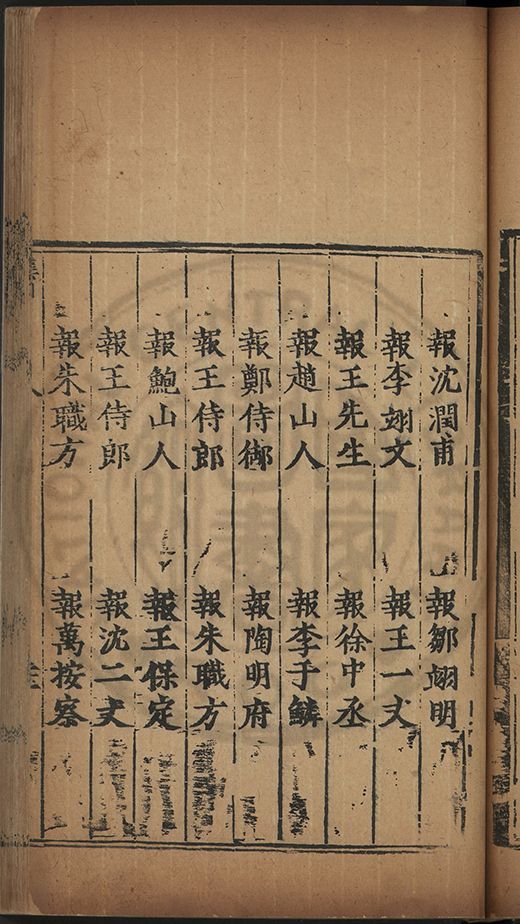 報沈潤甫 報鄒翊明
報李翊文 報王一丈
報王先生 報徐中丞
報趙山人 報李于鱗
報鄭侍御 報陶明府
報王侍郎 報朱職方
報鮑山人 報王保定
報王侍郎 報沈二丈
報朱職方 報萬按察